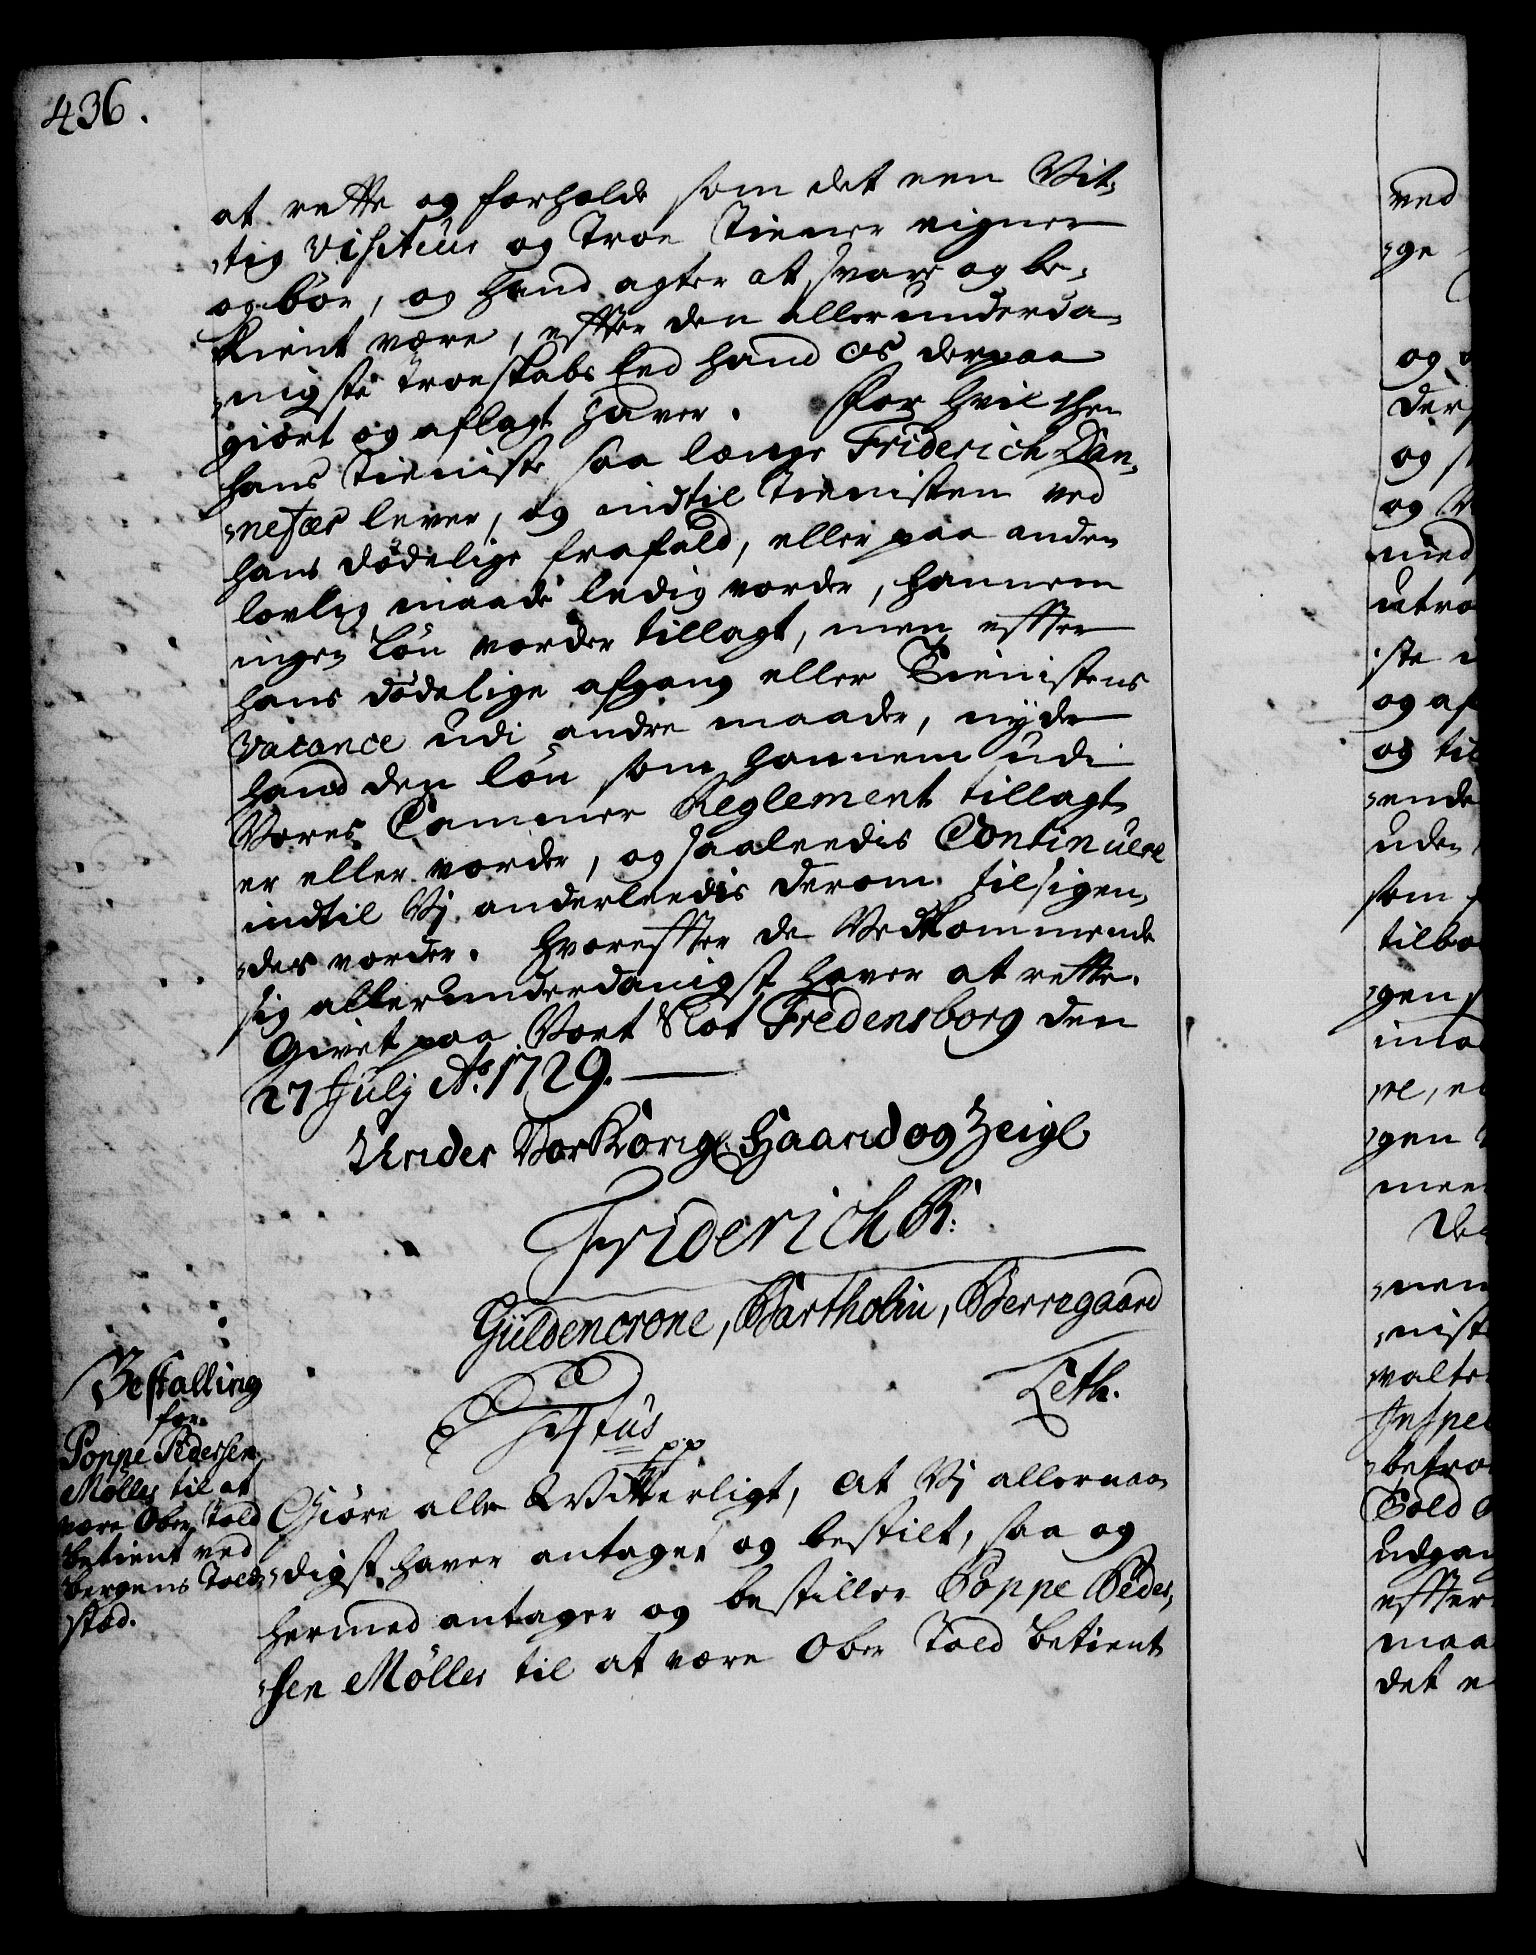 436.
at rette og forholde som det een Vit,
,tig Visiteur og Troe Tiener eigner
og bör, og hand agter at svare og be,
kient være, effter den allerunderda,
,nigste Troeskabs Eed hand Os derpaa
giort og aflagt haver. For hvilchen
hans Tieniste saa længe Friderich Dan,
,nefær lever, og indtil Tienisten ved
hans dödelige frafald, eller paa anden
lovlig maade ledig vorder, hannem
ingen Lön vorder tillagt, men effter
hans dödelige afgang eller Tienistens
Vacance udi andre maader, nyder
hand den lön som hannem udi
Vores Cammer Reglement tillagt
er eller vorder, og saaleedis Continuere
indtil Vj anderleedis derom tilsigen,
,des vorder. Hvoreffter de Vedkommende
sig allerunderdanigst haver at rette.
Givet paa Vort Slot Fredensborg den
27 Julj Ao. 1729.
Under Vor Kongl. Haand og Zeigl
Friderich R:
Güldencrone, Bartholin, Berregaard
Leth.
Justus
Bestalling
for
Poppe Pedersen
Möller til at
være Ober Told
betient ved
Bergens Told,
stæd.
pp
Giöre alle Witterligt, at Vj allernaa,
,digst haver antaget og bestilt, saa og
hermed antager og bestiller Poppe Peder,
,sen Möller til at være Ober Told betient
ved
,ge
og
ders
og
og
med
utro
,ste
og af
os til
,ende
uden
som
tilbø
,gen
imod
,re, e
,gen
meer
De
,nem
,nist
valte
Inspec
,betro
Told
udgan
effter
maa
det e